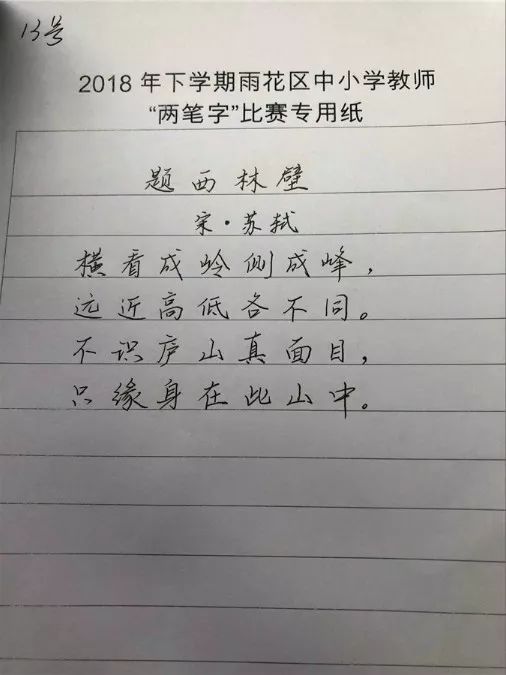 13号
2018 年下学期雨花区中小学教师
“两笔字”比赛专用纸
题西林壁
宋·苏轼
横看成岭侧成峰，
远近高低各不同。
不识庐山真面目，
只缘身在此山中。